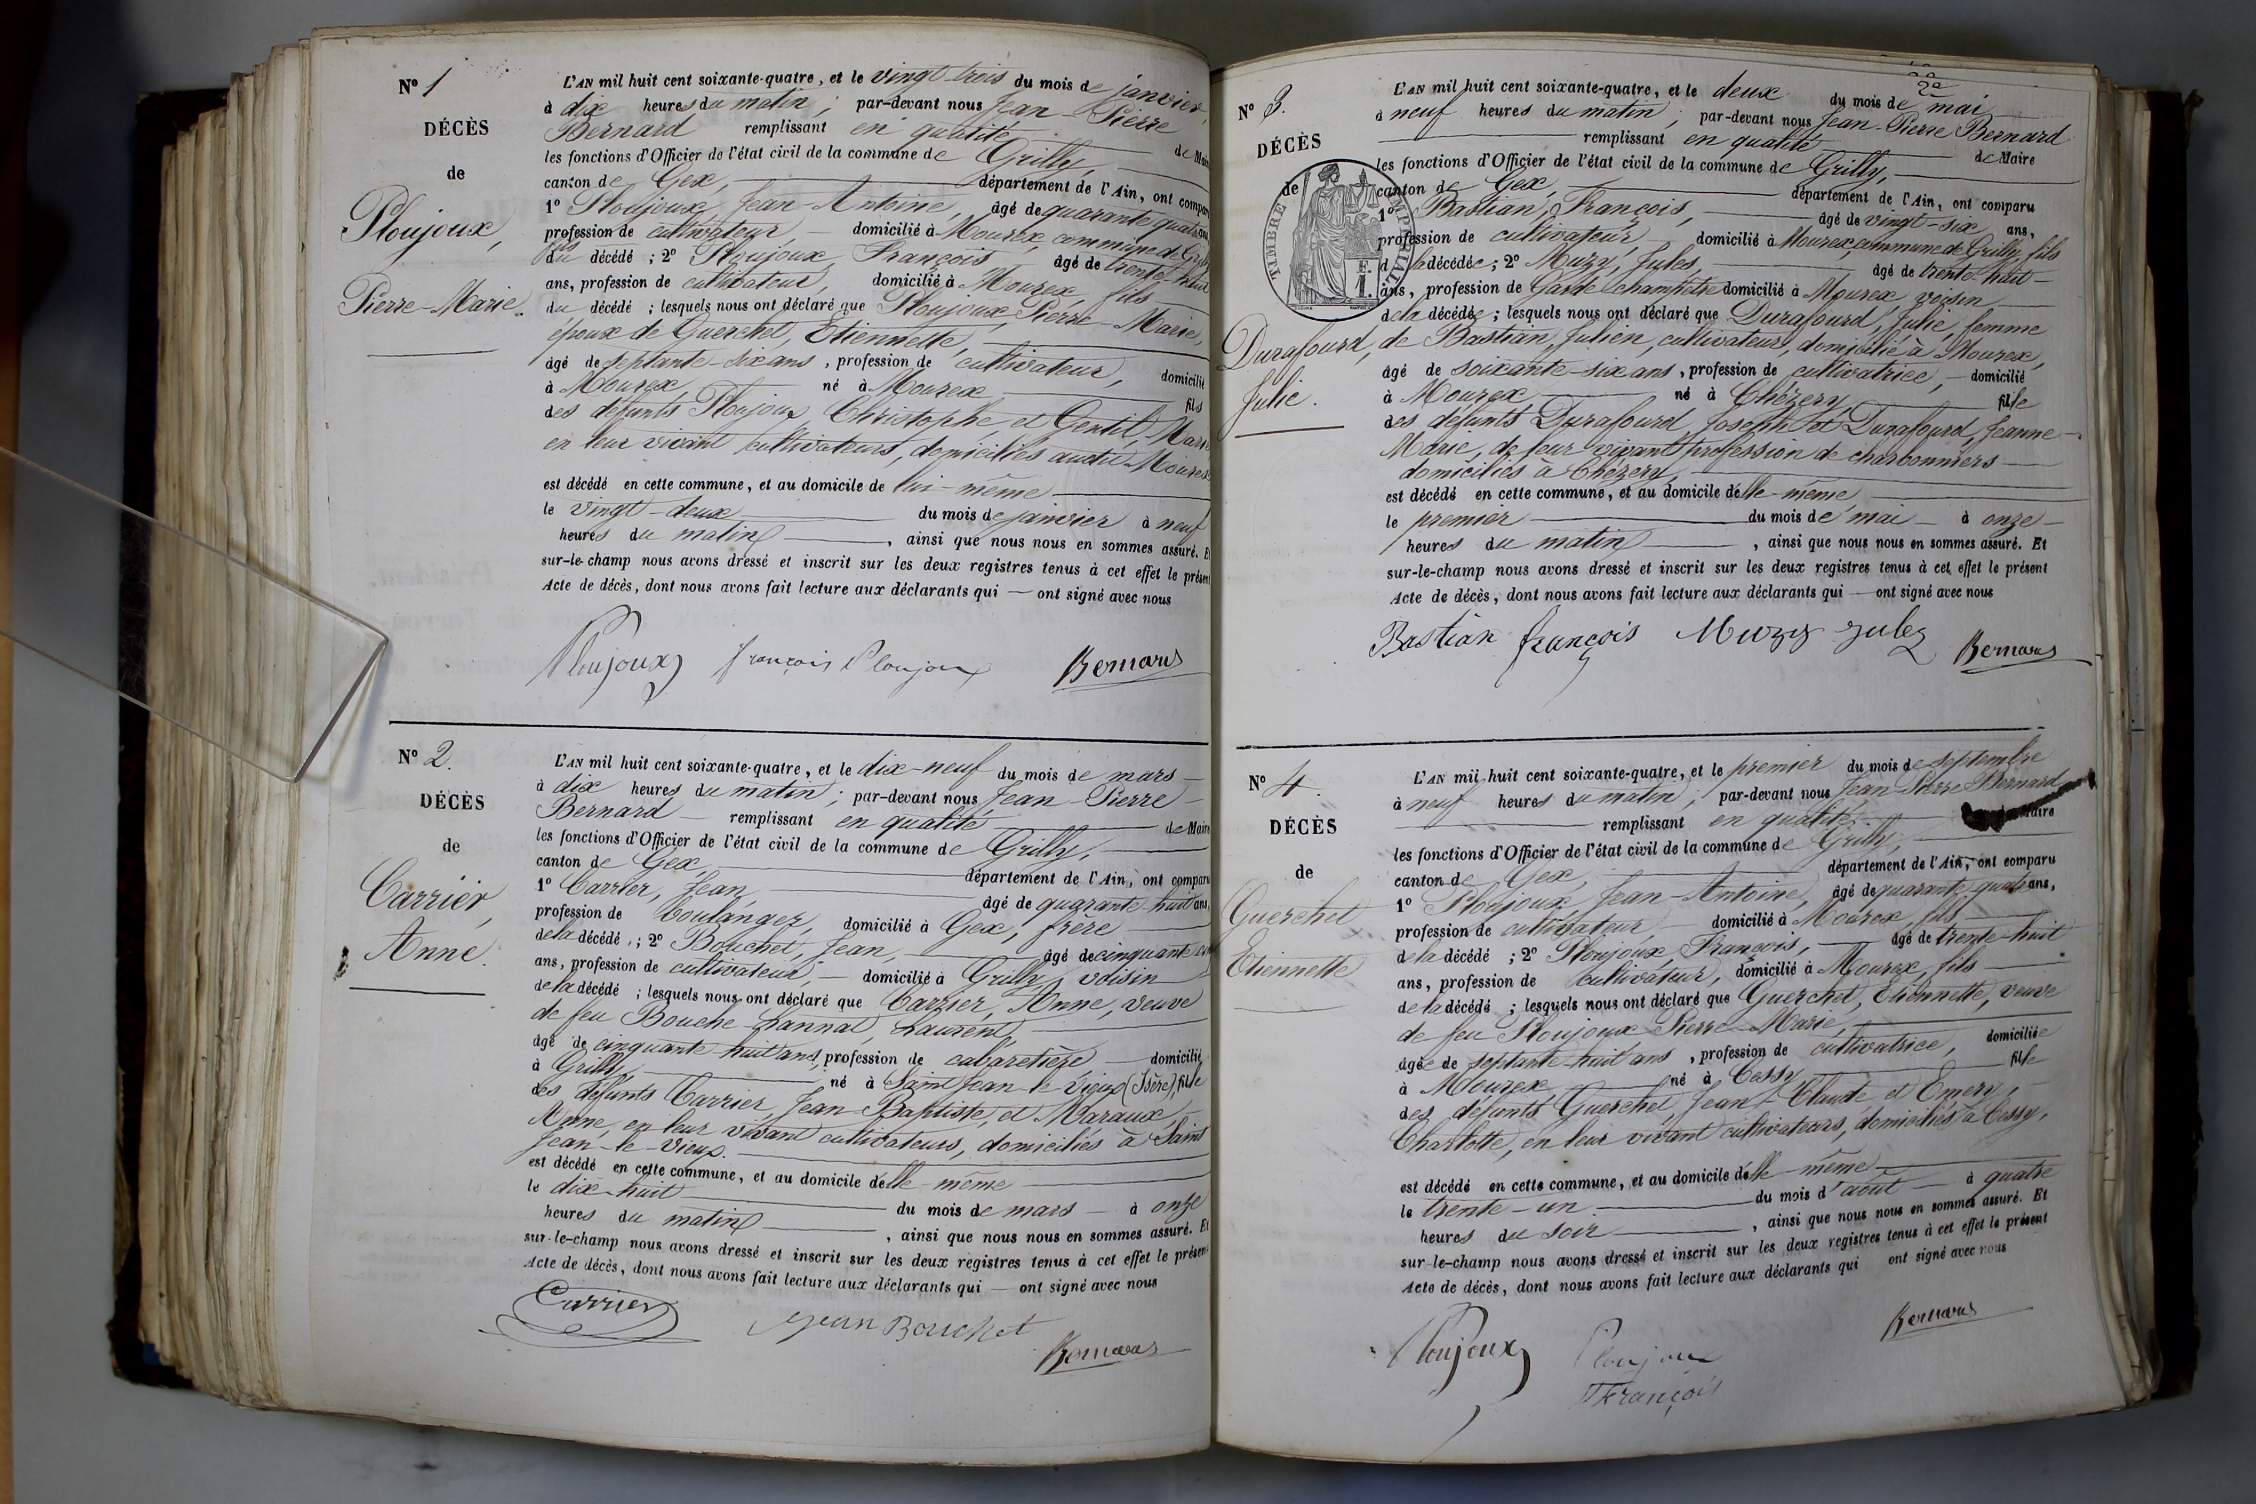 Nº 1
DÉCÈS
de
Ploujoux,
Pierre-Marie.
L'AN mil huit cent soixante-quatre, et le vingt-trois du mois de janvier,
à dix heures du matin; par-devant nous Jean-Pierre
Bernard remplissant en qualité de Maire
les fonctions d'Officier de l'état civil de la commune de Grilly,
canton de Gex, département de l'Ain, ont comparu
1º Ploujoux, Jean-Antoine, âgé de quarante quatre ans,
profession de cultivateur, domicilié à Mourex, commune de Grilly
fils du décédé; 2º Ploujoux, François âgé de trente-huit
ans, profession de cultivateur, domicilié à Mourex, fils
du décédé; lesquels nous ont déclaré que Ploujoux, Pierre-Marie,
époux de Guerchet, Etiennette,
âgé de septante-six ans, profession de cultivateur, domicilié
à Mourex né à Mourex fils
des défunts Ploujoux, Christophe et Gentil, Marie
en leur vivant cultivateurs, domiciliés audit Mourex
est décédé en cette commune, et au domicile de lui-même
le vingt-deux du mois de janvier à neuf
heures du matin, ainsi que nous nous en sommes assuré. Et
sur-le-champ nous avons dressé et inscrit sur les deux registres tenus à cet effet le présent
Acte de décès, dont nous avons fait lecture aux déclarants qui — ont signé avec nous
Ploujoux françois Ploujoux Bernard
Nº 2.
DÉCÈS
de
Carrier,
Anne.
L'AN mil huit cent soixante-quatre, et le dix-neuf du mois de mars
à dix heures du matin; par-devant nous Jean-Pierre
Bernard remplissant en qualité de Maire
les fonctions d'Officier de l'état civil de la commune de Grilly,
canton de Gex, département de l'Ain, ont comparu
1º Carrier, Jean, âgé de quarante-huit ans,
profession de boulanger, domicilié à Gex, frère
de la décédé; 2º Bouchet, Jean, âgé de cinquante
ans, profession de cultivateur, domicilié à Grilly, voisin
de la décédé; lesquels nous ont déclaré que Carrier, Anne, veuve
de feu Bouche-Lannat, Laurent,
âgé de cinquante huit ans, profession de cabaretière domicilié
à Grilly, né à Saint Jean-le-Vieux (Isère), fille
des défunts Carrier, Jean-Baptiste, et Maraux,
Anne, en leur vivant cultivateurs, domiciliés à Saint
Jean-le-Vieux.
est décédé en cette commune, et au domicile d'elle-même
le dix-huit du mois de mars à onze
heures du matin, ainsi que nous nous en sommes assuré. Et
sur-le-champ nous avons dressé et inscrit sur les deux registres tenus à cet effet le présent
Acte de décès, dont nous avons fait lecture aux déclarants qui — ont signé avec nous
Carrier Jean Bouchet
Bernard
22
Nº 3.
DÉCÈS
de
TIMBRE IMPERIAL
F. 1.
Durafourd,
Julie.
L'AN mil huit cent soixante-quatre, et le deux du mois de mai
à neuf heures du matin; par-devant nous Jean-Pierre Bernard
remplissant en qualité de Maire
les fonctions d'Officier de l'état civil de la commune de Grilly,
canton de Gex, département de l'Ain, ont comparu
1º Bastian, François, âgé de vingt-six ans,
profession de cultivateur domicilié à Mourex, commune de Grilly, fils
de la décédée; 2º Muzy, Jules, âgé de trente-huit
ans, profession de Garde champêtre domicilié à Mourex voisin
de la décédée; lesquels nous ont déclaré que Durafourd, Julie, femme
de Bastian, Julien, cultivateur, domicilié à Mourex,
âgé de soixante-six ans, profession de cultivatrice, domicilié
à Mourex né à Chézery, fille
des défunts Durafourd Joseph et Durafourd, Jeanne-
Marie, de leur vivant profession de charbonniers
domiciliés à Chézery,
est décédé en cette commune, et au domicile d'elle-même
le premier du mois de mai à onze
heures du matin, ainsi que nous nous en sommes assuré. Et
sur-le-champ nous avons dressé et inscrit sur les deux registres tenus à cet effet le présent
Acte de décès, dont nous avons fait lecture aux déclarants qui — ont signé avec nous
Bastian françois Muzy jules Bernard
Nº 4.
DÉCÈS
de
Guerchet
Etiennette
L'AN mil huit cent soixante-quatre, et le premier du mois de septembre
à neuf heures du matin; par-devant nous Jean-Pierre Bernard
remplissant en qualité Maire
les fonctions d'Officier de l'état civil de la commune de Grilly,
canton de Gex, département de l'Ain, ont comparu
1º Ploujoux Jean-Antoine, âgé de quarante quatre ans,
profession de cultivateur domicilié à Mourex, fils
de la décédé; 2º Ploujoux, François, âgé de trente-huit
ans, profession de cultivateur, domicilié à Mourex, fils
de la décédé; lesquels nous ont déclaré que Guerchet, Etiennette, veuve
de feu Ploujoux Pierre-Marie,
âgée de septante-huit ans, profession de cultivatrice, domiciliée
à Mourex né à Cessy fille
des défunts Guerchet, Jean-Claude et Emery,
Charlotte, en leur vivant cultivateurs, domiciliés à Cessy,
est décédé en cette commune, et au domicile d'elle-même
le trente-un du mois d'août à quatre
heures du soir, ainsi que nous nous en sommes assuré. Et
sur-le-champ nous avons dressé et inscrit sur les deux registres tenus à cet effet le présent
Acte de décès, dont nous avons fait lecture aux déclarants qui ont signé avec nous
Ploujoux Ploujoux Bernard
François